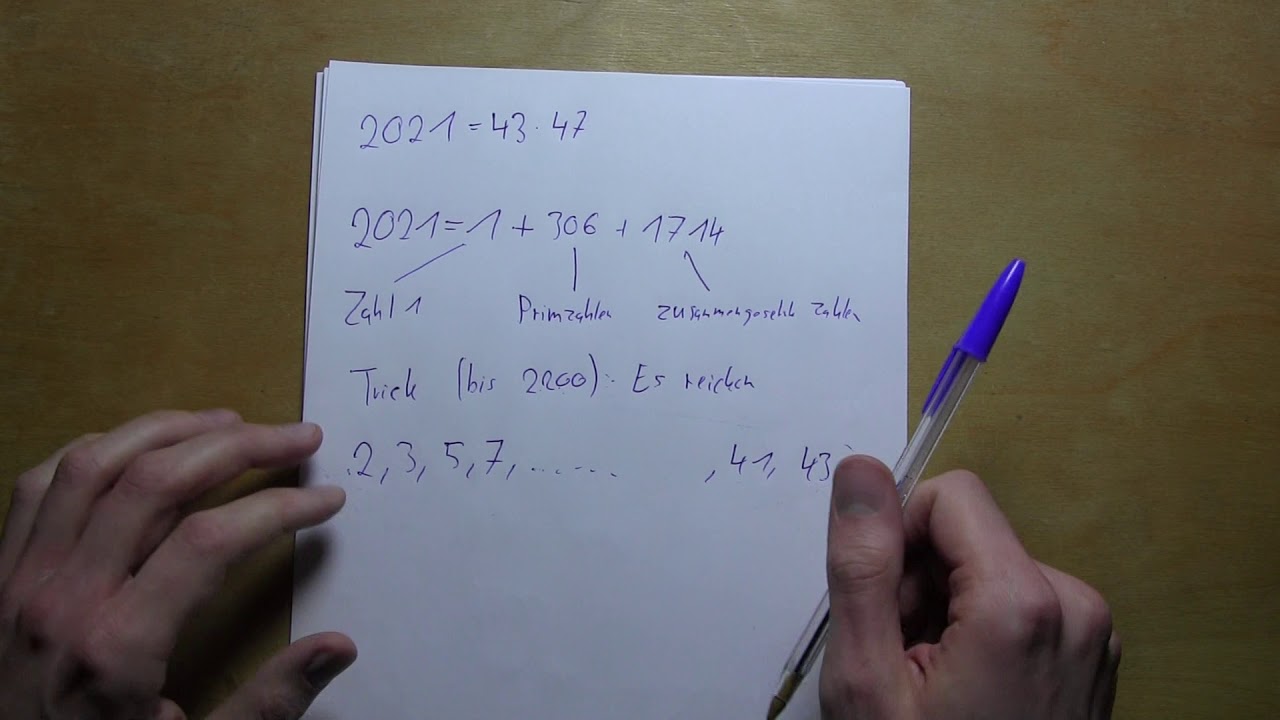 2021 = 43 · 47
2021 = 1 + 306 + 1714
Zahl 1 Primzahlen zusammengesetzte Zahlen
Trick (bis 2200): Es reichen
2, 3, 5, 7, ...... , 41, 43